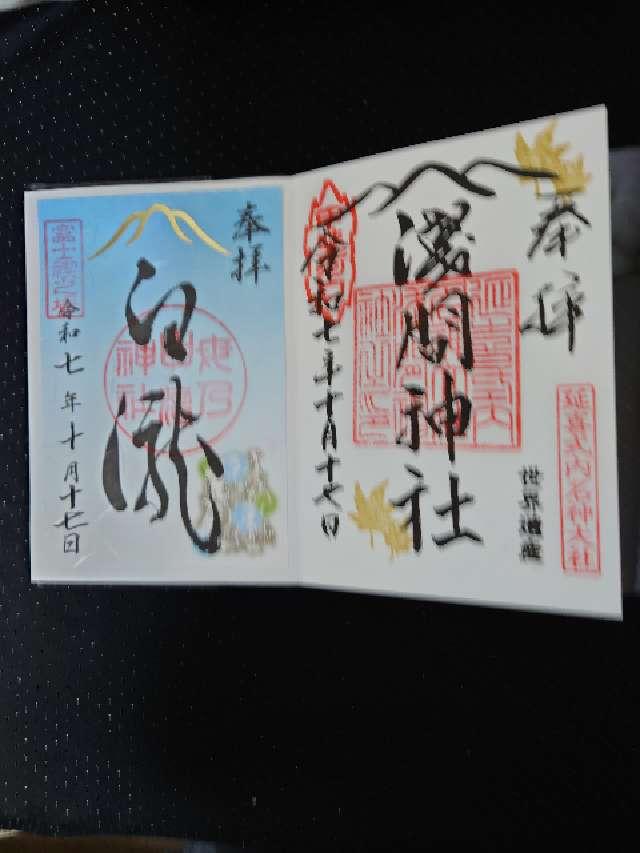 奉拝
延喜式内名神大社
世界遺産
浅間神社
令和七年十月十七日
奉拝
白瀧
令和七年十月十七日